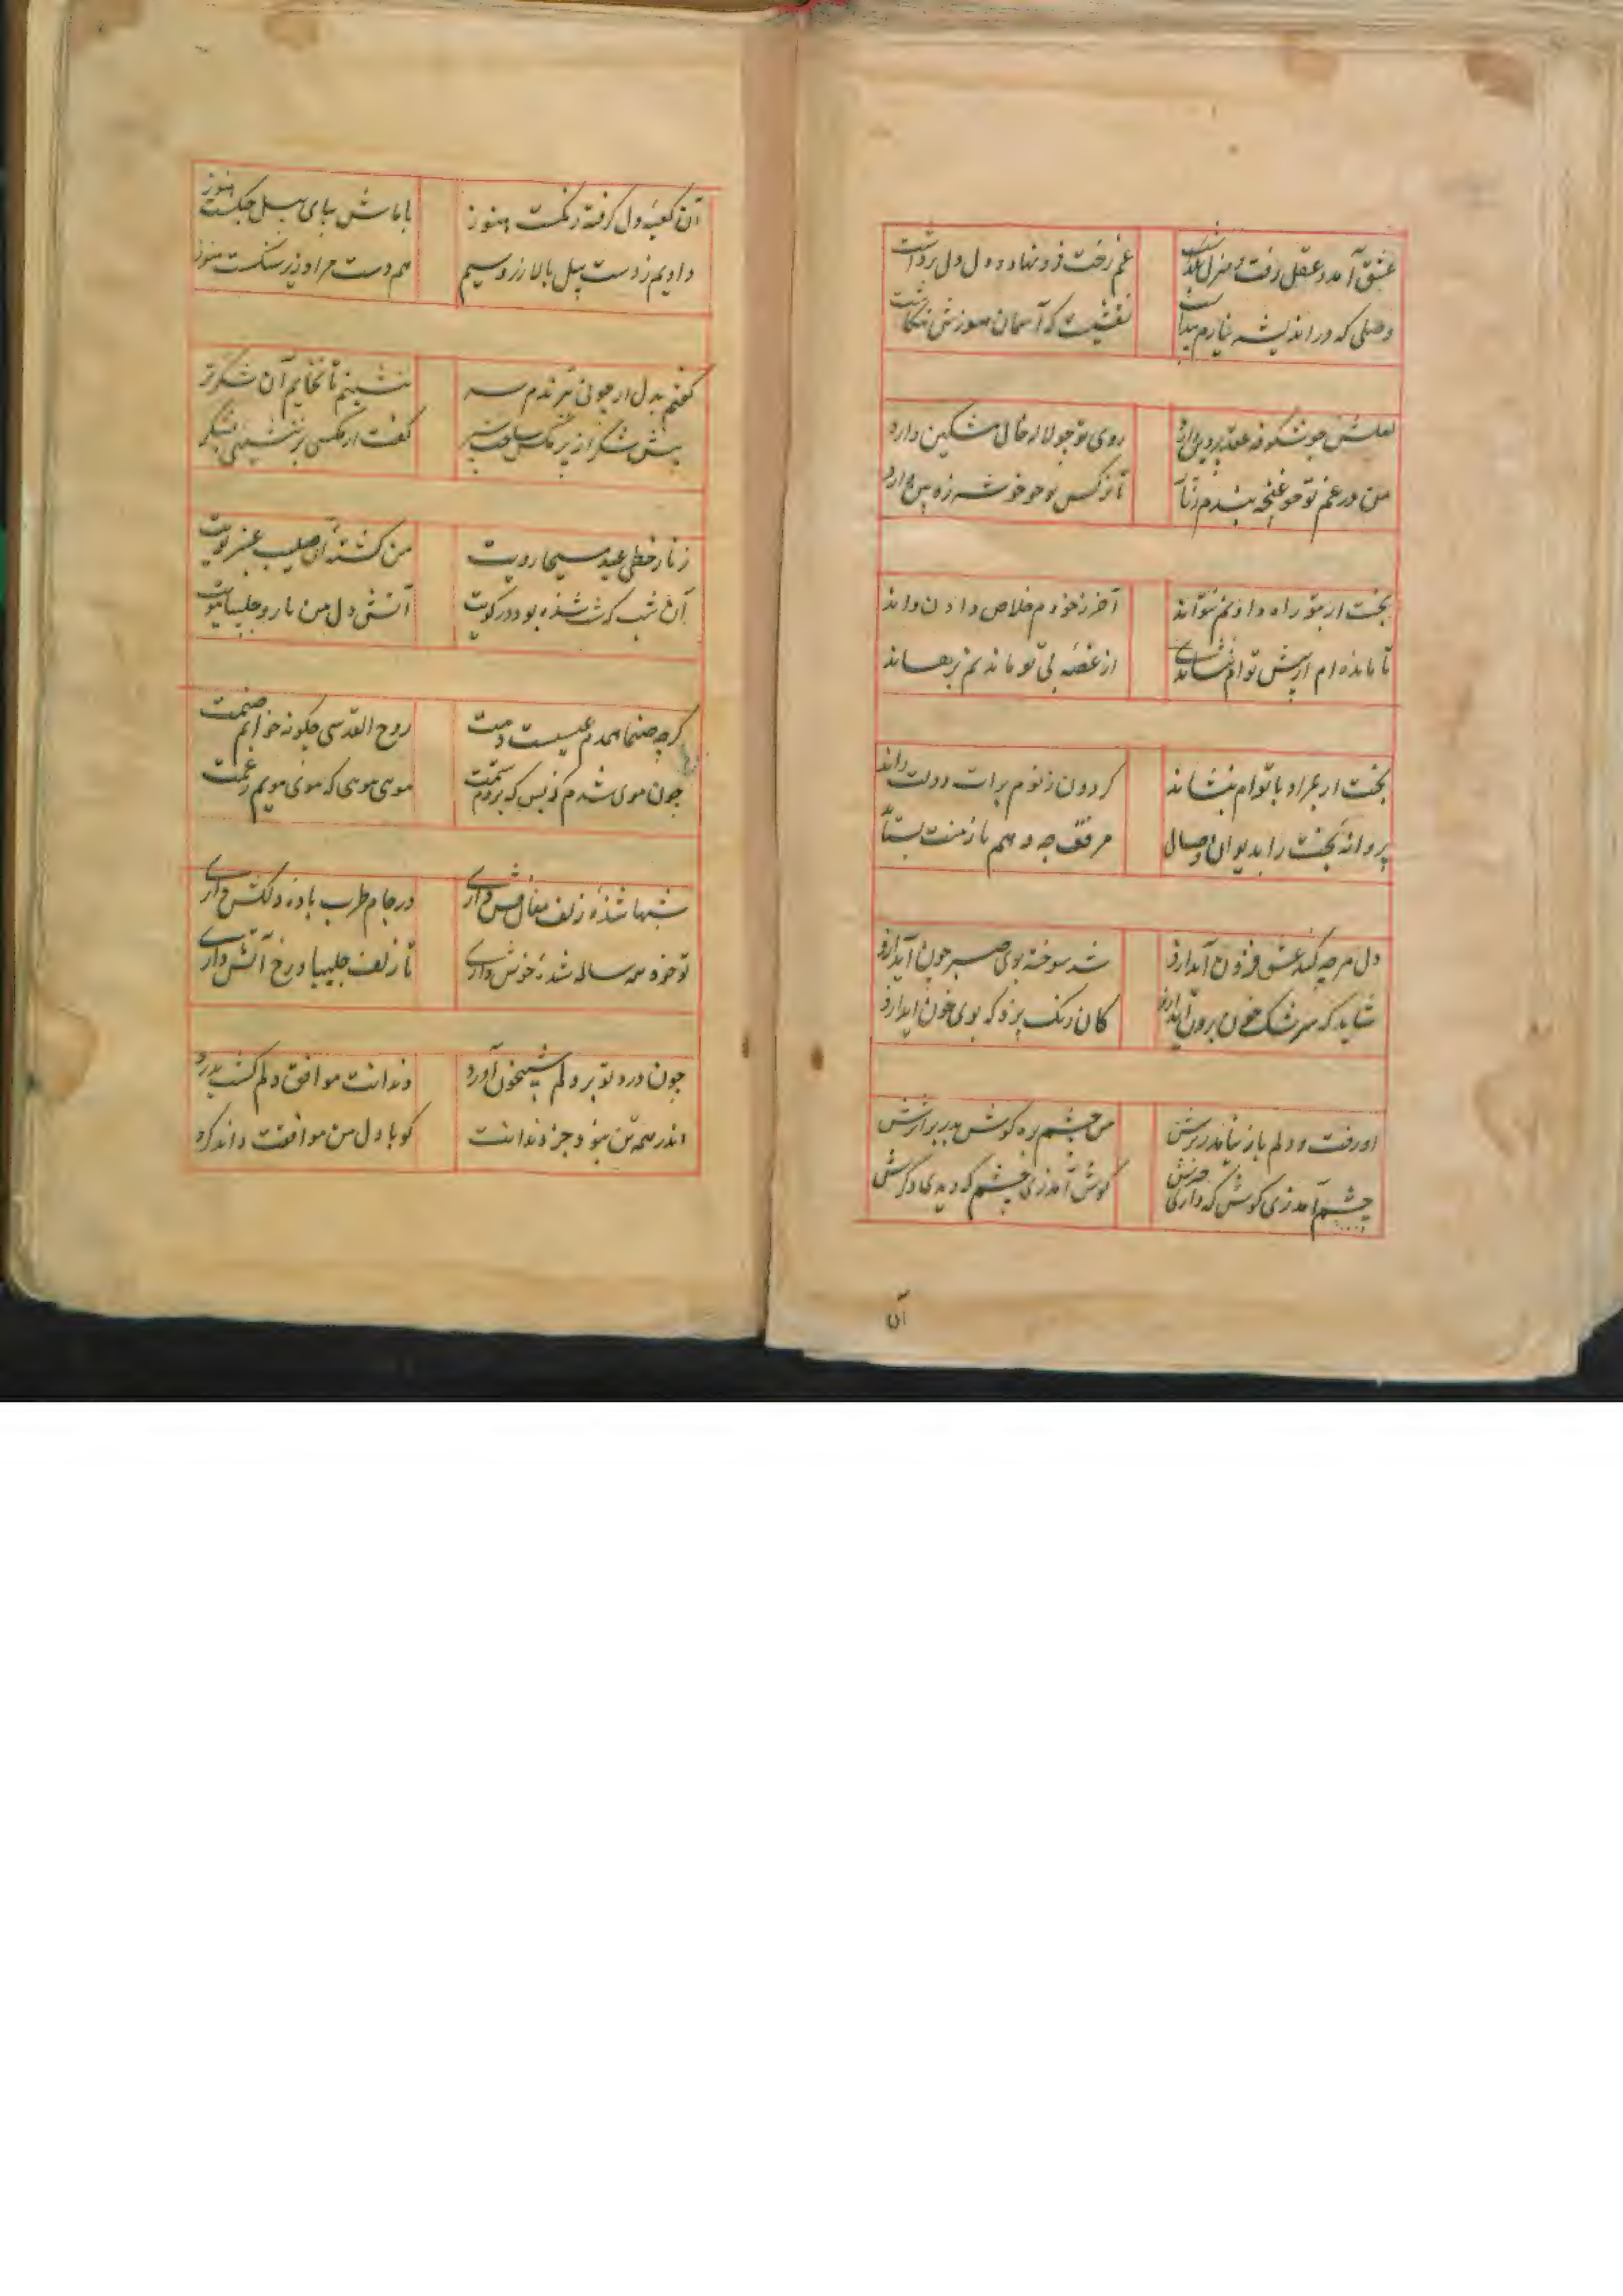 عشق آمد و عقل رفت و منزل بگذاشت غم رخت فرو نهاد و دل دل برداشت
وصلی که در اندیشه نیارم پنداشت نقشیست که آسمان هنوزش ننگاشت
لعلش چو شکوفه عقد پروین دارد روی تو چو لاله خال مشکین دارد
من در غم تو چو غنچه بندم زنار تا نرکس تو چو خوشه زوبین دارد
بخت ار بتو راه دادنم نتواند آخر ز خودم خلاص دادن داند
تا مانده‌ام از پیش تو ام ننشاندی از غصه بی تو ماندنم برهاند
بخت ار بمراد با توام بنشاند کردون ز تو ام برات دولت راند
پروانه بخت را بدیوان وصال مرفق چه دهم تا ز منت بستاند
دل هرچه کند عشق فزون آید ازو شد سوخته بوی صبر چون آید ازو
شاید که سرشک خون برون آید ازو کان رنک بزد که بوی خون آید ازو
او رفت و دلم باز نیامد ز برش من چشم بره کوش بدر بر اثرش
چشم آمد زی کوش که داری خبرش کوش آمد زی چشم که دیدی دکرش
آن
آن کعبه دل کرفته رنکست هنوز با ماش بپای پیل جنکست هنوز
دادیم ز دست پیل بالا زر و سیم هم دست مراد زیر سنکست هنوز
کفتم بدل ار چو نی ببرندم سر ننشینم تا نخایم آن شکر تر
پیش شکر از پر مکس ساخت سپر کفت ار مکسی بر ننشینی بشکر
زنار خطی عید مسیحا رویت من کشته آن صلیب عنبر بویت
آن شب که شب سده بود در کویت آتش دل من باد و چلیپا مویت
کرچه صنما همدم عیسیست دمت روح القدسی چکونه خوانم صنمت
چون موی شدم ز بس که بردم ستمت موی موی که موی مویم ز غمت
شبها سده زلف مغان فش داری در جام طرب باده دلکش داری
تو خود همه ساله سده خوش داری تا زلف چلیپا و رخ آتش داری
چون درد تو بر دلم شبیخون آورد دندانت موافق دلم کشت بدرد
اندر همه تن نبود جز دندانت کو با دل من موافقت داند کرد